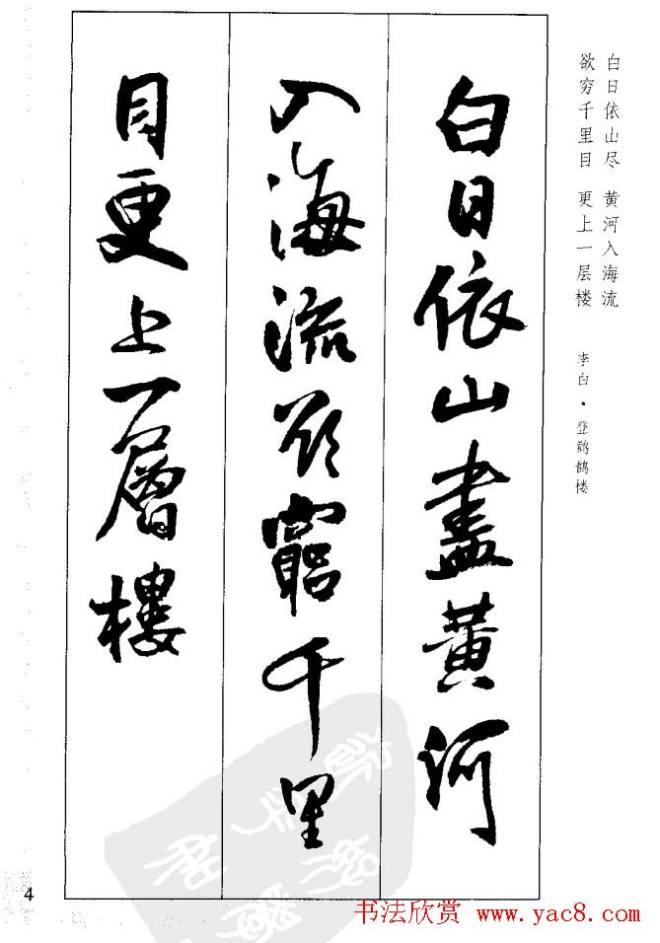 白日依山尽 黄河入海流
欲穷千里目 更上一层楼
李白·登鹳鹊楼
白日依山盡黄河
入海流欲窮千里
目更上一層樓
4
书法欣赏 www.yac8.com